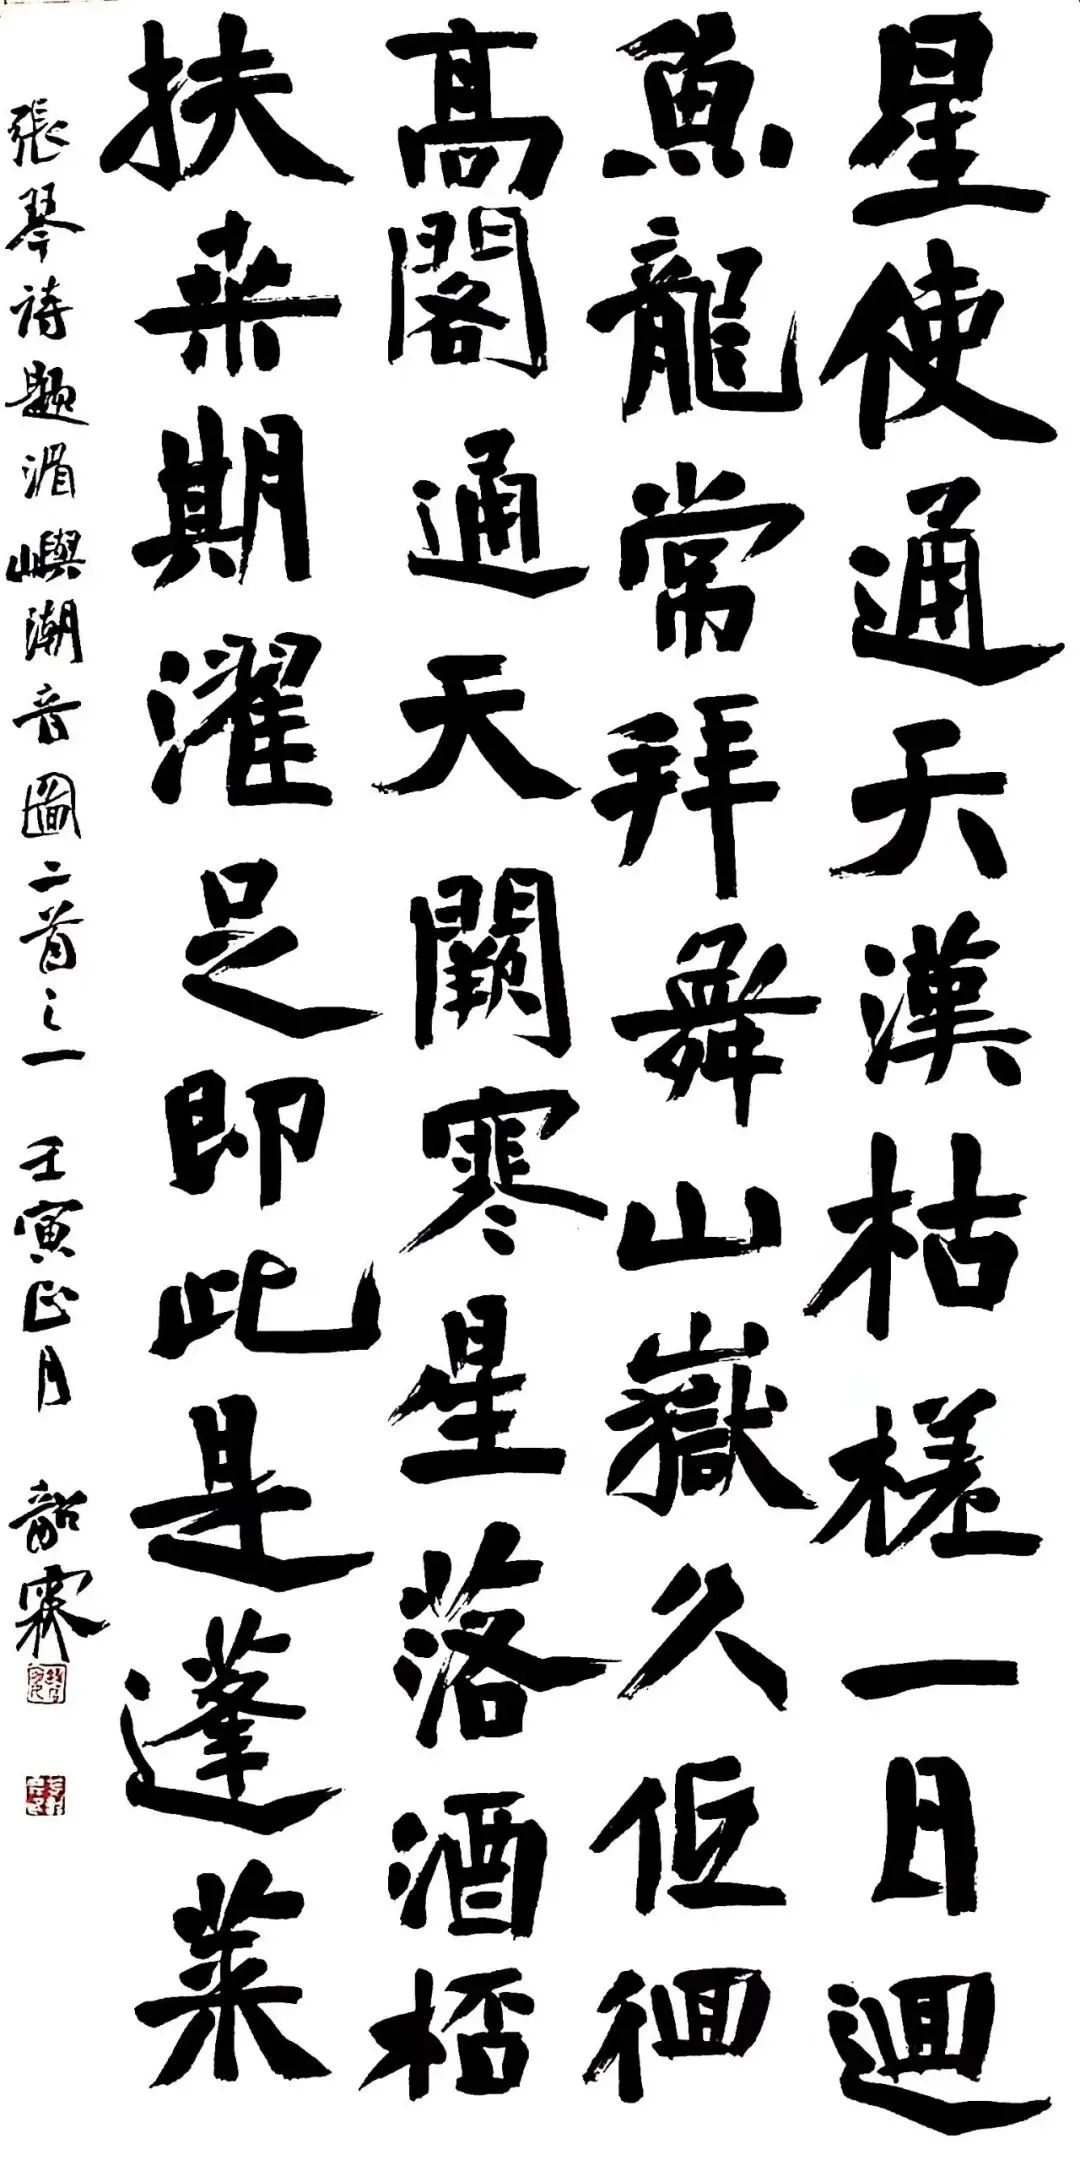 星使通天漢枯槎一日迴
魚龍常拜舞山嶽久低徊
高閣通天闕寒星落酒桮
扶桒期濯足即此是蓬莱
張琴诗题湄嶼潮音圖二首之一 壬寅正月 韶霖